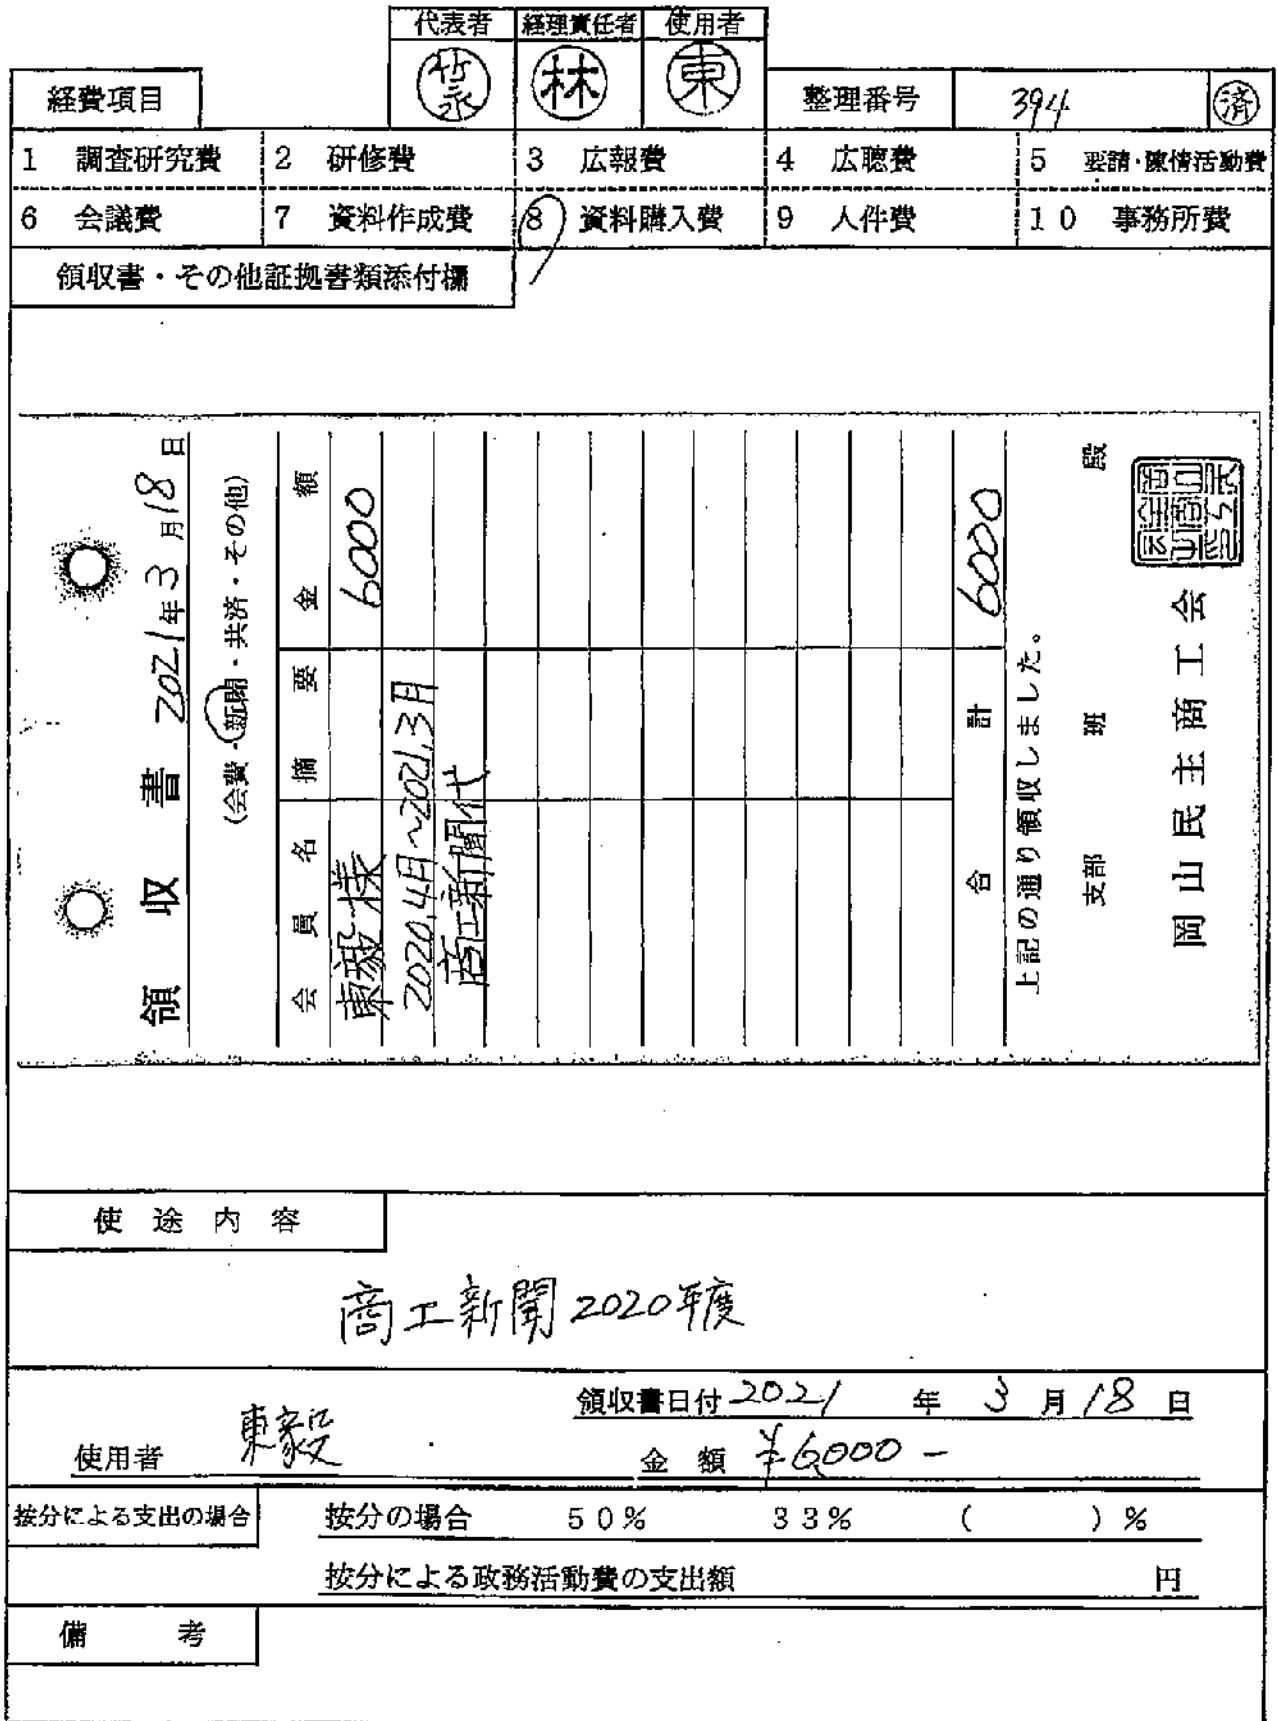 代表者 経理責任者 使用者
竹永 林 東
経費項目 整理番号 394 済
1 調査研究費 2 研修費 3 広報費 4 広聴費 5 要請・陳情活動費
6 会議費 7 資料作成費 8 資料購入費 9 人件費 10 事務所費
領収書・その他証拠書類添付欄
領収書 2021年3月18日
(会費・新聞・共済・その他)
会員名 摘要 金額
東毅様 6000
2020.4月~2021.3月
商工新聞代
合計 6000
上記の通り領収しました。
支部 班 殿
岡山民主商工会
使途内容
商工新聞2020年度
領収書日付 2021年3月18日
使用者 東毅 金額 ¥6000-
按分による支出の場合 按分の場合 50% 33% ( )%
按分による政務活動費の支出額 円
備考